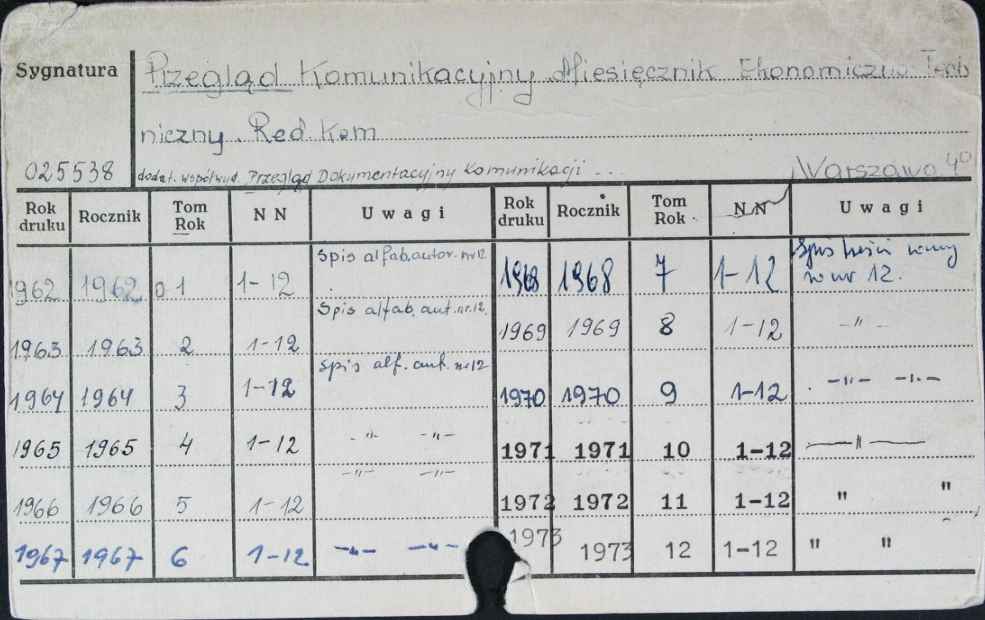 Sygnatura
Przegląd Komunikacyjny Miesięcznik Ekonomiczno Tech
niczny. Red Kom
025538 dodat. współwyd. Przegląd Dokumentacyjny Komunikacji ... Warszawa 40
Rok druku Rocznik Tom Rok N N Uwagi Rok druku Rocznik Tom Rok N N Uwagi
1962 1962 0 1 1-12 Spis alfab. autor. nr 12 1968 1968 7 1-12 Spis treści w nr 12.
1963 1963 2 1-12 Spis alfab. aut. nr. 12. 1969 1969 8 1-12 -"-
1964 1964 3 1-12 Spis alf. aut. nr 12 1970 1970 9 1-12 -"- -"-
1965 1965 4 1-12 -"- -"- 1971 1971 10 1-12 -"-
1966 1966 5 1-12 -"- -"- 1972 1972 11 1-12 " "
1967 1967 6 1-12 -"- -"- 1973 1973 12 1-12 " "